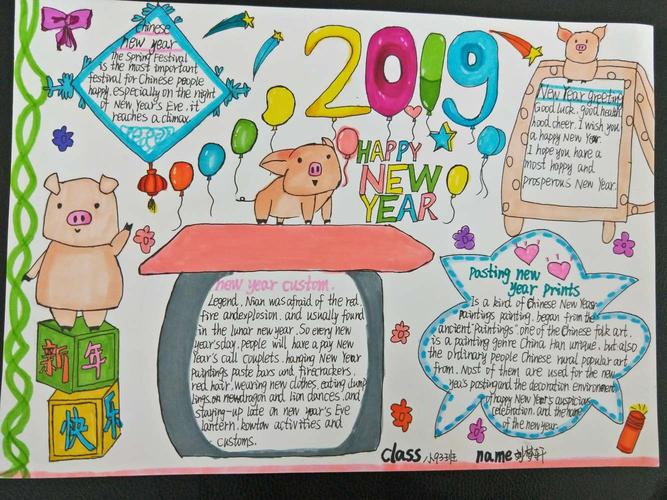 Chinese
new year
The Spring Festival
is the most important
festival for Chinese people
happy, especially on the night
of New Year's Eve. it
reaches a climax.
2019
HAPPY
NEW
YEAR
New Year greeting
Good luck, good health
hood cheer. I wish you
a happy New Year.
I hope you have a
most happy and
prosperous New Year.
新年
快乐
new year custom.
Legend, Nian was afraid of the red,
fire and explosion. and usually found
in the lunar new year. So every new
year's day, people will have a pay New
Year's call couplets, hanging New Year
paintings, paste bars and firecrackers,
red hair, wearing new clothes, eating dump
lings, on new dragon and lion dances, and
staying-up late on new year's Eve
lantern, kowtow activities and
customs.
Pasting new
year prints
Is a kind of Chinese New Year
paintings painting, began from the
ancient "Paintings" one of the Chinese folk art,
is a painting genre China Han unique, but also
the ordinary people Chinese rural popular art
from. Most of them are used for the new
year's posting and the decoration environment
of happy New Year's auspicious
celebration, and the name
of the new year.
class
name